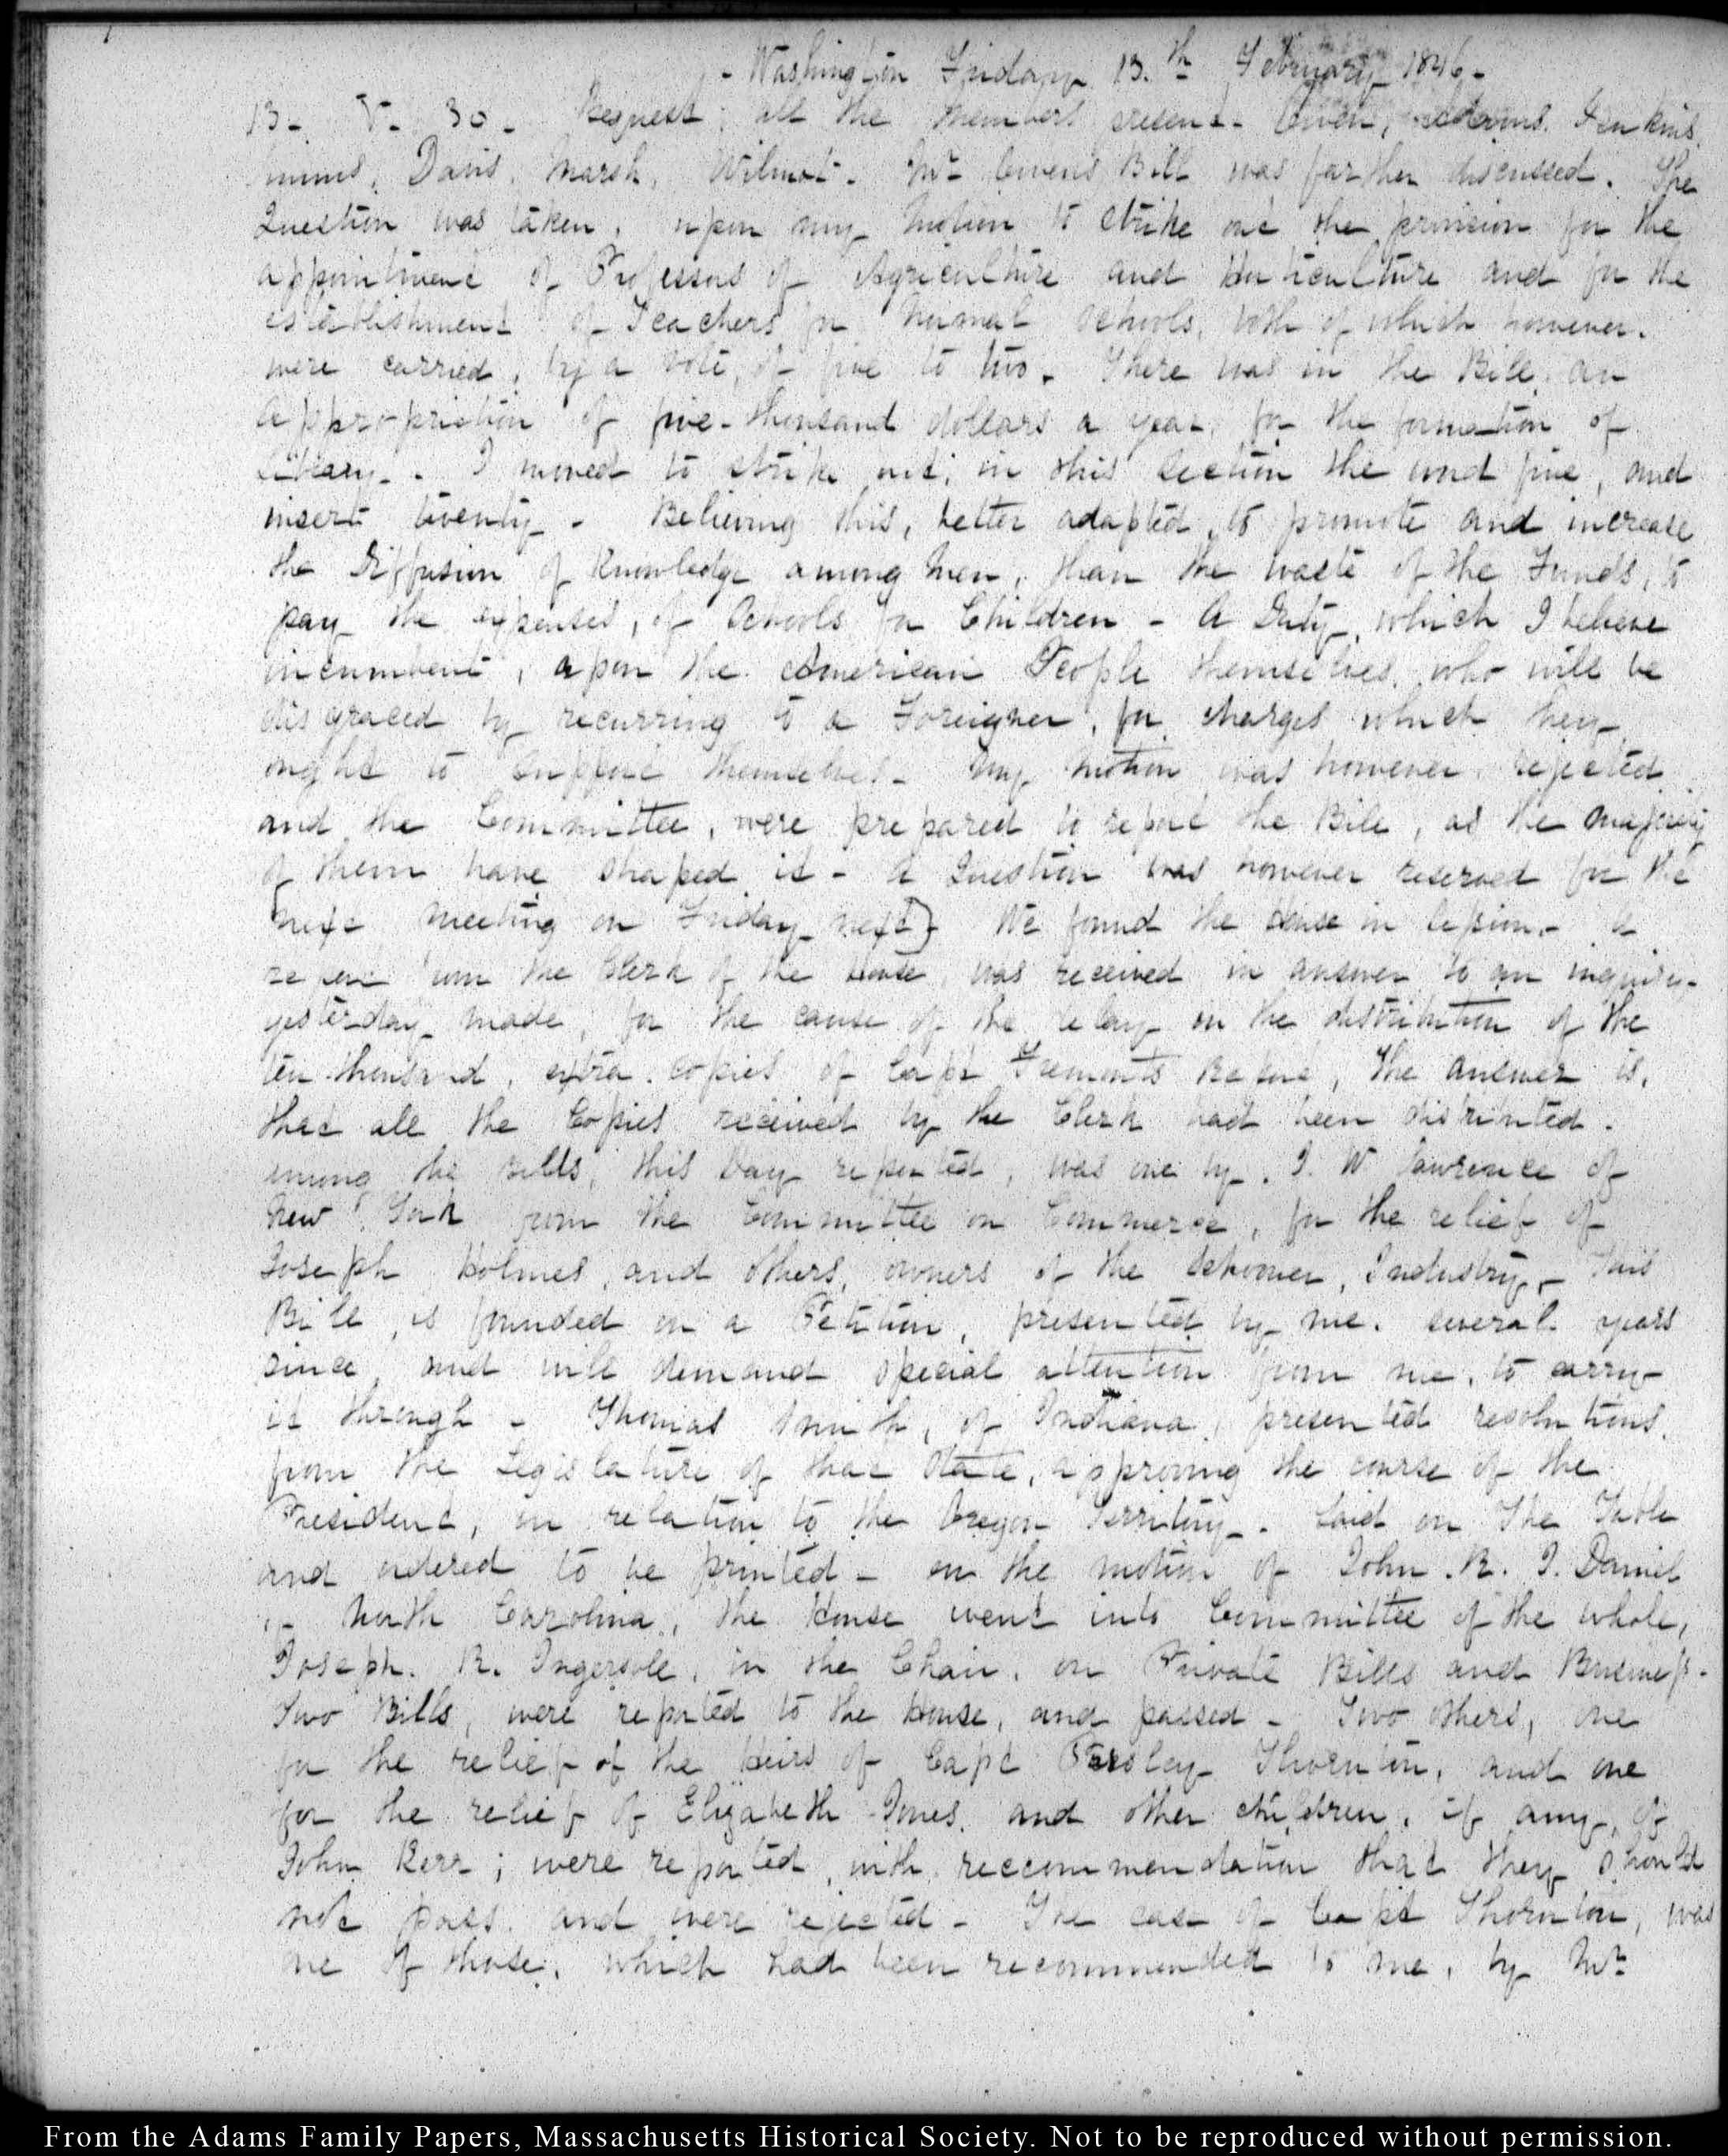 - Washington Friday 13.th February 1846 -
13 - V. 30. Bequest; all the members present. Owen, Adams. Jenkins,
Simms, Davis, Marsh, Wilmot. Mr Owen's Bill was farther discussed. The
Question was taken, upon my Motion to strike out the provision for the
appointment of Professors of Agriculture and Horticulture and for the
establishment of Teachers for Normal Schools, both of which however.
were carried, by a vote, of five to two. There was in the Bill, an
appropriation of five-thousand dollars a year, for the formation of
Library. - I moved to strike out, in this Section the word five, and
insert twenty - Believing this, better adapted, to promote and increase
the Diffusion of Knowledge among Men, than the waste of the Funds, to
pay the expenses, of Schools for Children - A Duty, which I believe
incumbent, upon the American People themselves, who will be
disgraced by recurring to a Foreigner, for charges which they
ought to support themselves - My Motion was however rejected
and the Committee, were prepared to report the Bill, as the majority
of them have shaped it - A Question was however reserved for the
next meeting on Friday next] We found the House in Session. - A
report from the Clerk of the House was received in answer to an inquiry
yesterday made, for the cause of the delay in the distribution of the
ten thousand, extra copies of Capt Fremont's Report, The answer is,
that all the Copies received by the Clerk had been distributed.
among the Bills, this Day reported, was one by J. W Lawrence of
New York from the Committee on Commerce, for the relief of
Joseph Holmes, and others, owners of the Schooner, Industry - This
Bill, is founded on a Petition, presented by me. several years
since and will demand special attention from me, to carry
it through - Thomas Smith, of Indiana, presented resolutions,
from the Legislature of that State, approving the course of the
President, in relation to the Oregon Territory. Laid on The Table
and ordered to be printed - on the motion of John. R. J. Daniel
of North Carolina, the House went into Committee of the whole,
Joseph. R. Ingersoll, in the Chair, on Private Bills and Business.
Two Bills, were reported to the House, and passed - Two others, one
for the relief of the Heirs of Capt Presley Thornton, and one
for the relief of Elizabeth Jones, and other children, if any, of
John Kerr; were reported, with reccommendation that they should
not pass. and were rejected - The case of Capt Thornton, was
one of those, which had been recommended to me, by Mr
From the Adams Family Papers, Massachusetts Historical Society. Not to be reproduced without permission.